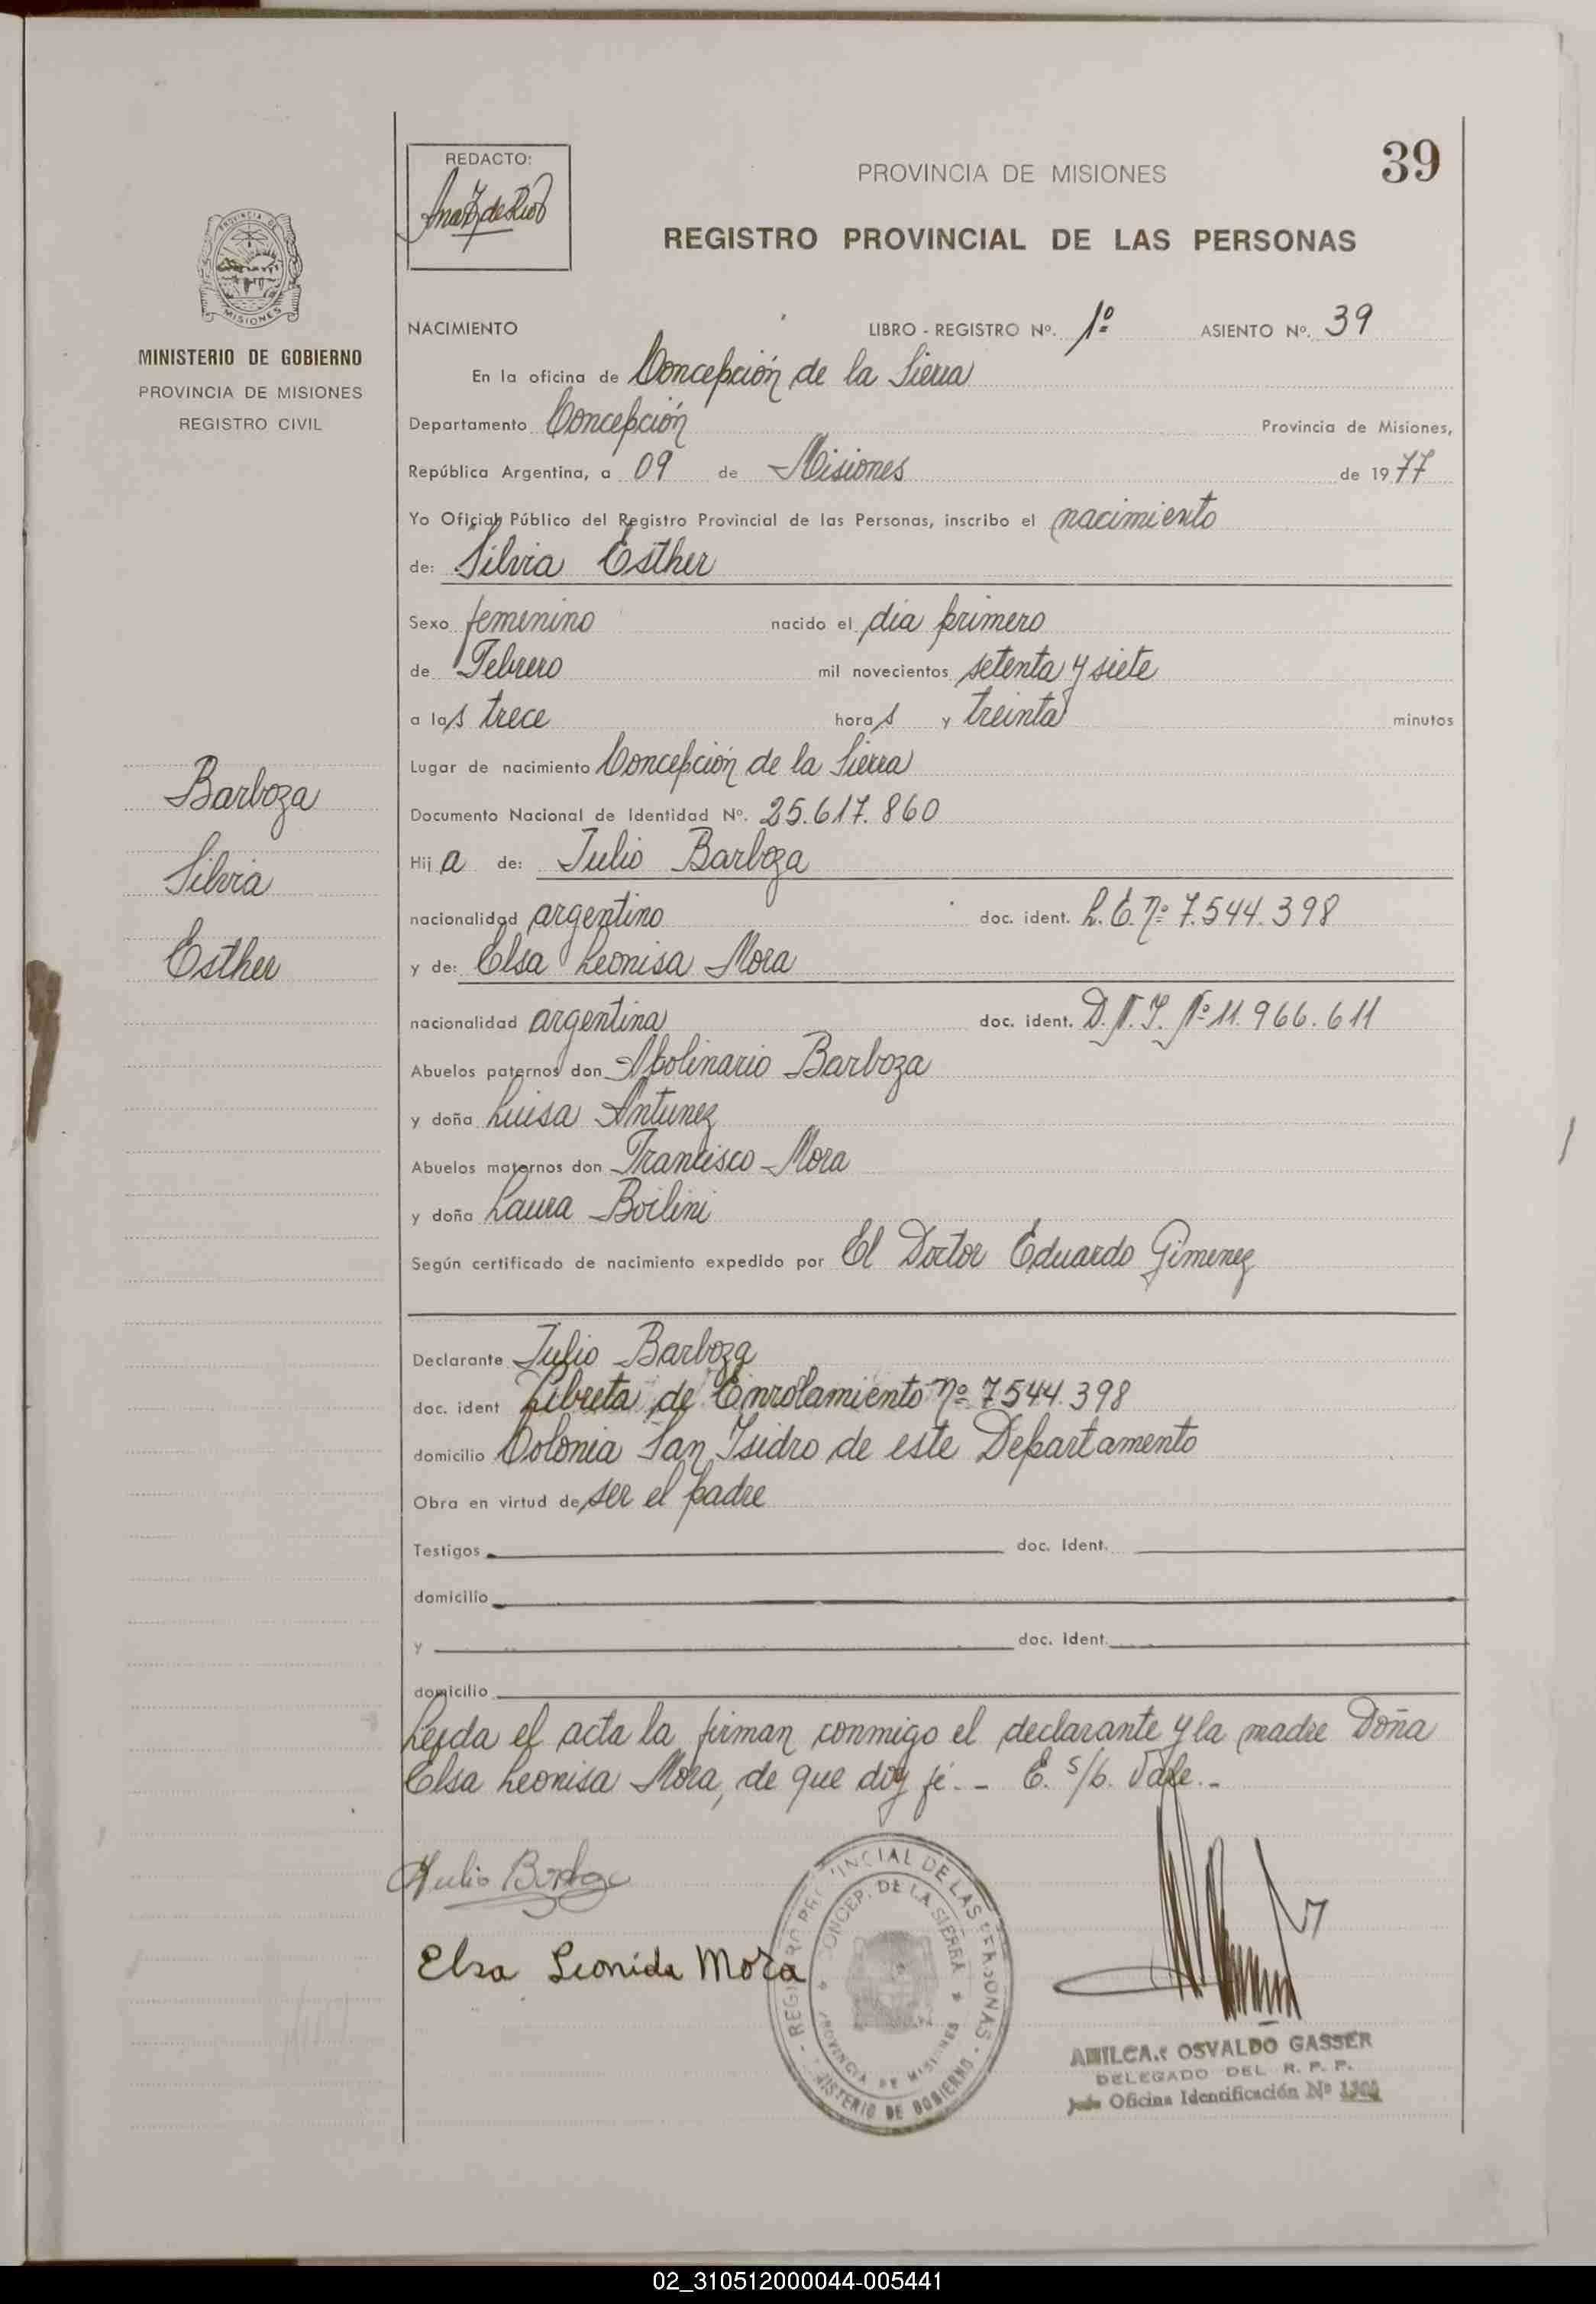 39
REDACTO:
PROVINCIA DE MISIONES
REGISTRO PROVINCIAL DE LAS PERSONAS
MISIONES
MINISTERIO DE GOBIERNO
PROVINCIA DE MISIONES
REGISTRO CIVIL
NACIMIENTO LIBRO - REGISTRO Nº. 1º ASIENTO Nº. 39
En la oficina de Concepción de la Sierra
Departamento Concepción Provincia de Misiones,
República Argentina, a 09 de Misiones de 1977
Yo Oficial Público del Registro Provincial de las Personas, inscribo el nacimiento
de: Silvia Esther
Sexo femenino nacido el día primero
de Febrero mil novecientos setenta y siete
a las trece horas y treinta minutos
Lugar de nacimiento Concepción de la Sierra
Documento Nacional de Identidad Nº. 25.617.860
Hija de: Julio Barboza
nacionalidad argentino doc. ident. L.E. nº 7.544.398
y de: Elsa Leonisa Mora
nacionalidad argentina doc. ident. D.N.I. Nº 11.966.611
Abuelos paternos don Apolinario Barboza
y doña Luisa Antunez
Abuelos maternos don Francisco Mora
y doña Laura Boilini
Según certificado de nacimiento expedido por El Doctor Eduardo Gimenez
Barboza
Silvia
Esther
Declarante Julio Barboza
doc. ident Libreta de Enrolamiento nº 7544.398
domicilio Colonia San Isidro de este Departamento
Obra en virtud de ser el padre
Testigos doc. Ident.
domicilio
y doc. Ident.
domicilio
Leída el acta la firman conmigo el declarante y la madre Doña
Elsa Leonisa Mora, de que doy fé.- E. s/b. Vale.-
Julio Barboza
Elsa Leonida Mora
REGISTRO PROVINCIAL DE LAS PERSONAS
CONCEP. DE LA SIERRA
PROVINCIA DE MISIONES
MINISTERIO DE GOBIERNO
AMILCAR OSVALDO GASSER
DELEGADO DEL R. P. P.
Jefe Oficina Identificación Nº
02_310512000044-005441